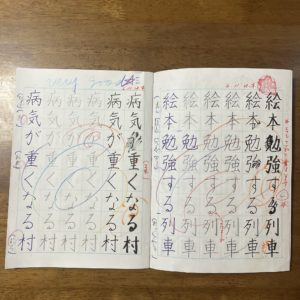 絵本勉強する列車
絵本勉強する列車
絵本勉強する列車
絵本勉強する列車
絵本勉強する列車
very good
病気が重くなる村
病気が重くなる村
病気が重くなる村
病気が重くなる村
病気が重くなる村
病気が重くなる村